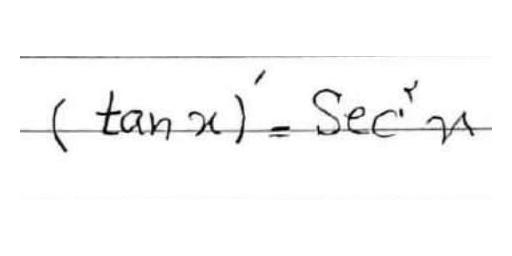 (tan x)' = Sec² x